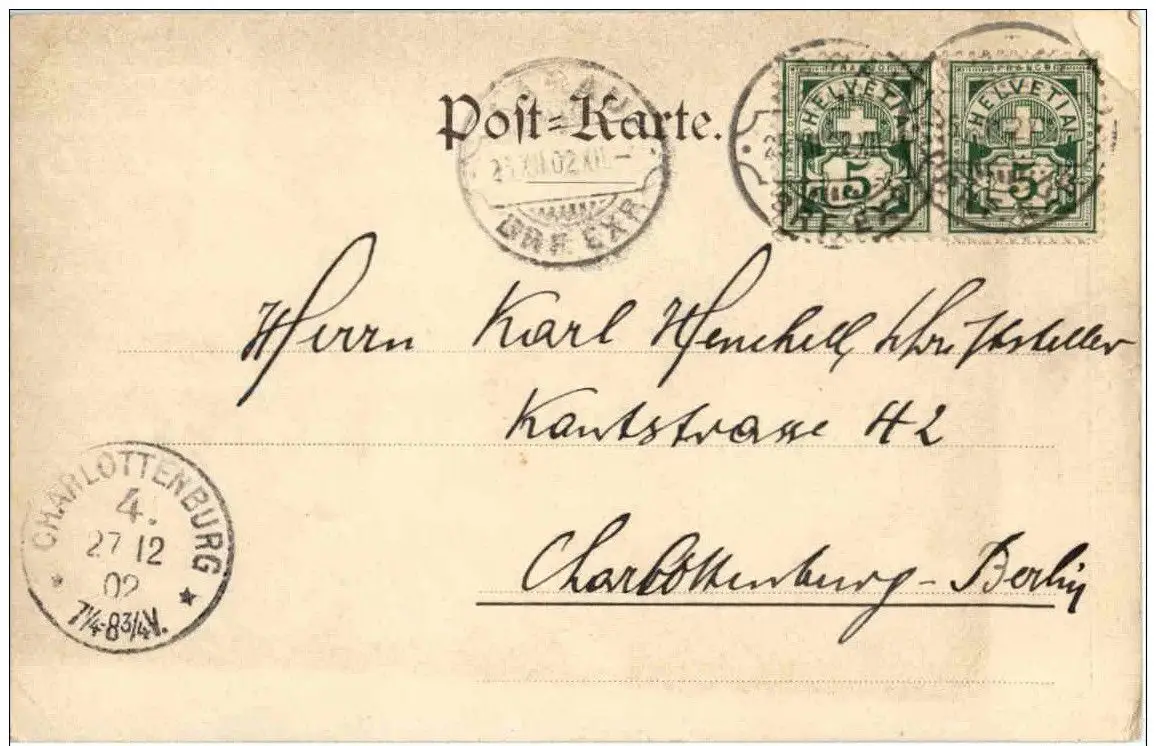 Post-Karte.
AARAU
25.XII.02.XII.–
BRF. EXP.
HELVETIA
5
HELVETIA
5
FRANCO
Herrn Karl Henckell, Schriftsteller
Kantstrasse 42
Charlottenburg-Berlin
CHARLOTTENBURG
4.
27 12
02
7¼-8¾V.